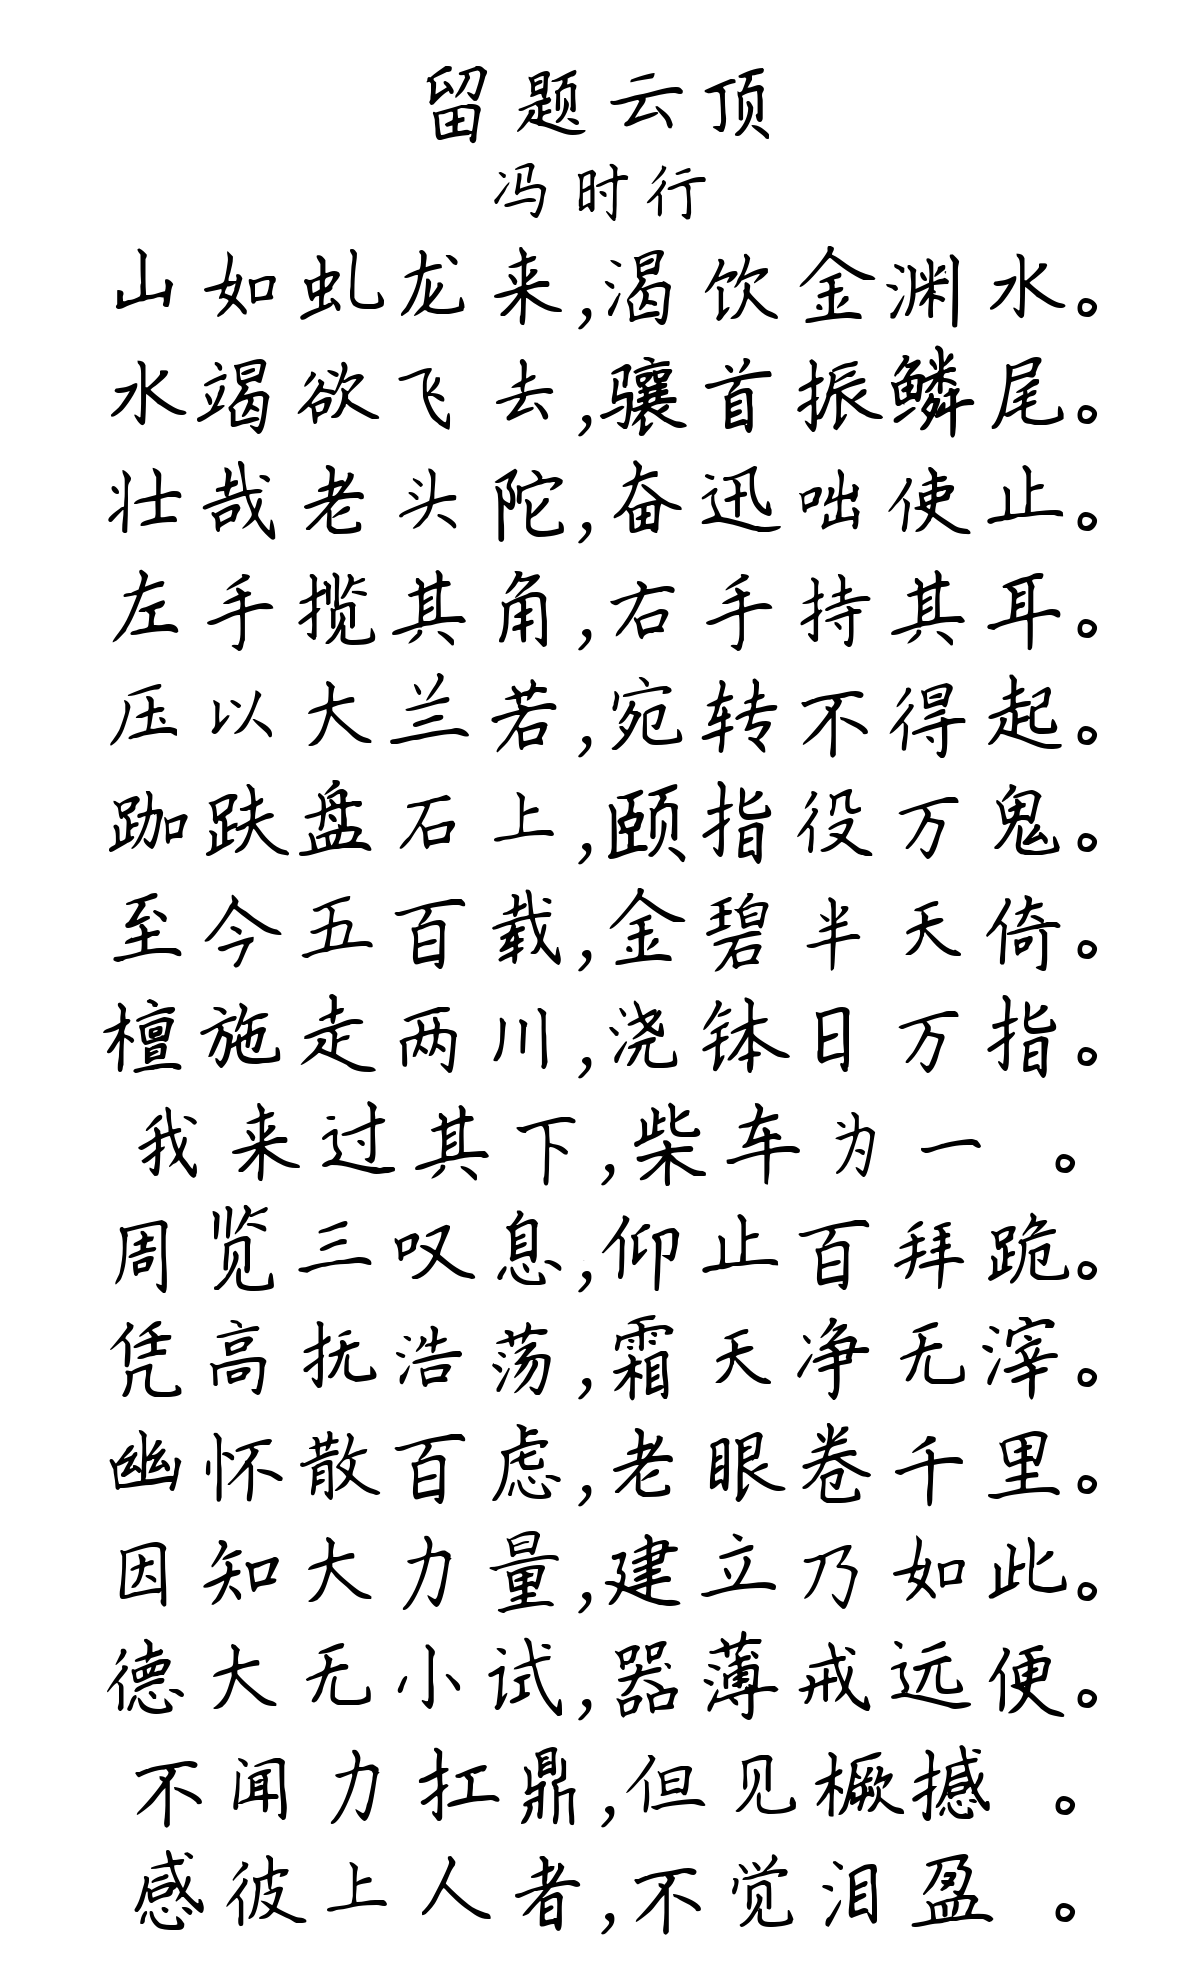 留题云顶
冯时行
山如虬龙来,渴饮金渊水。
水竭欲飞去,骧首振鳞尾。
壮哉老头陀,奋迅咄使止。
左手揽其角,右手持其耳。
压以大兰若,宛转不得起。
跏趺盘石上,颐指役万鬼。
至今五百载,金碧半天倚。
檀施走两川,浇钵日万指。
我来过其下,柴车为一 。
周览三叹息,仰止百拜跪。
凭高抚浩荡,霜天净无滓。
幽怀散百虑,老眼卷千里。
因知大力量,建立乃如此。
德大无小试,器薄戒远便。
不闻力扛鼎,但见橛撼 。
感彼上人者,不觉泪盈 。